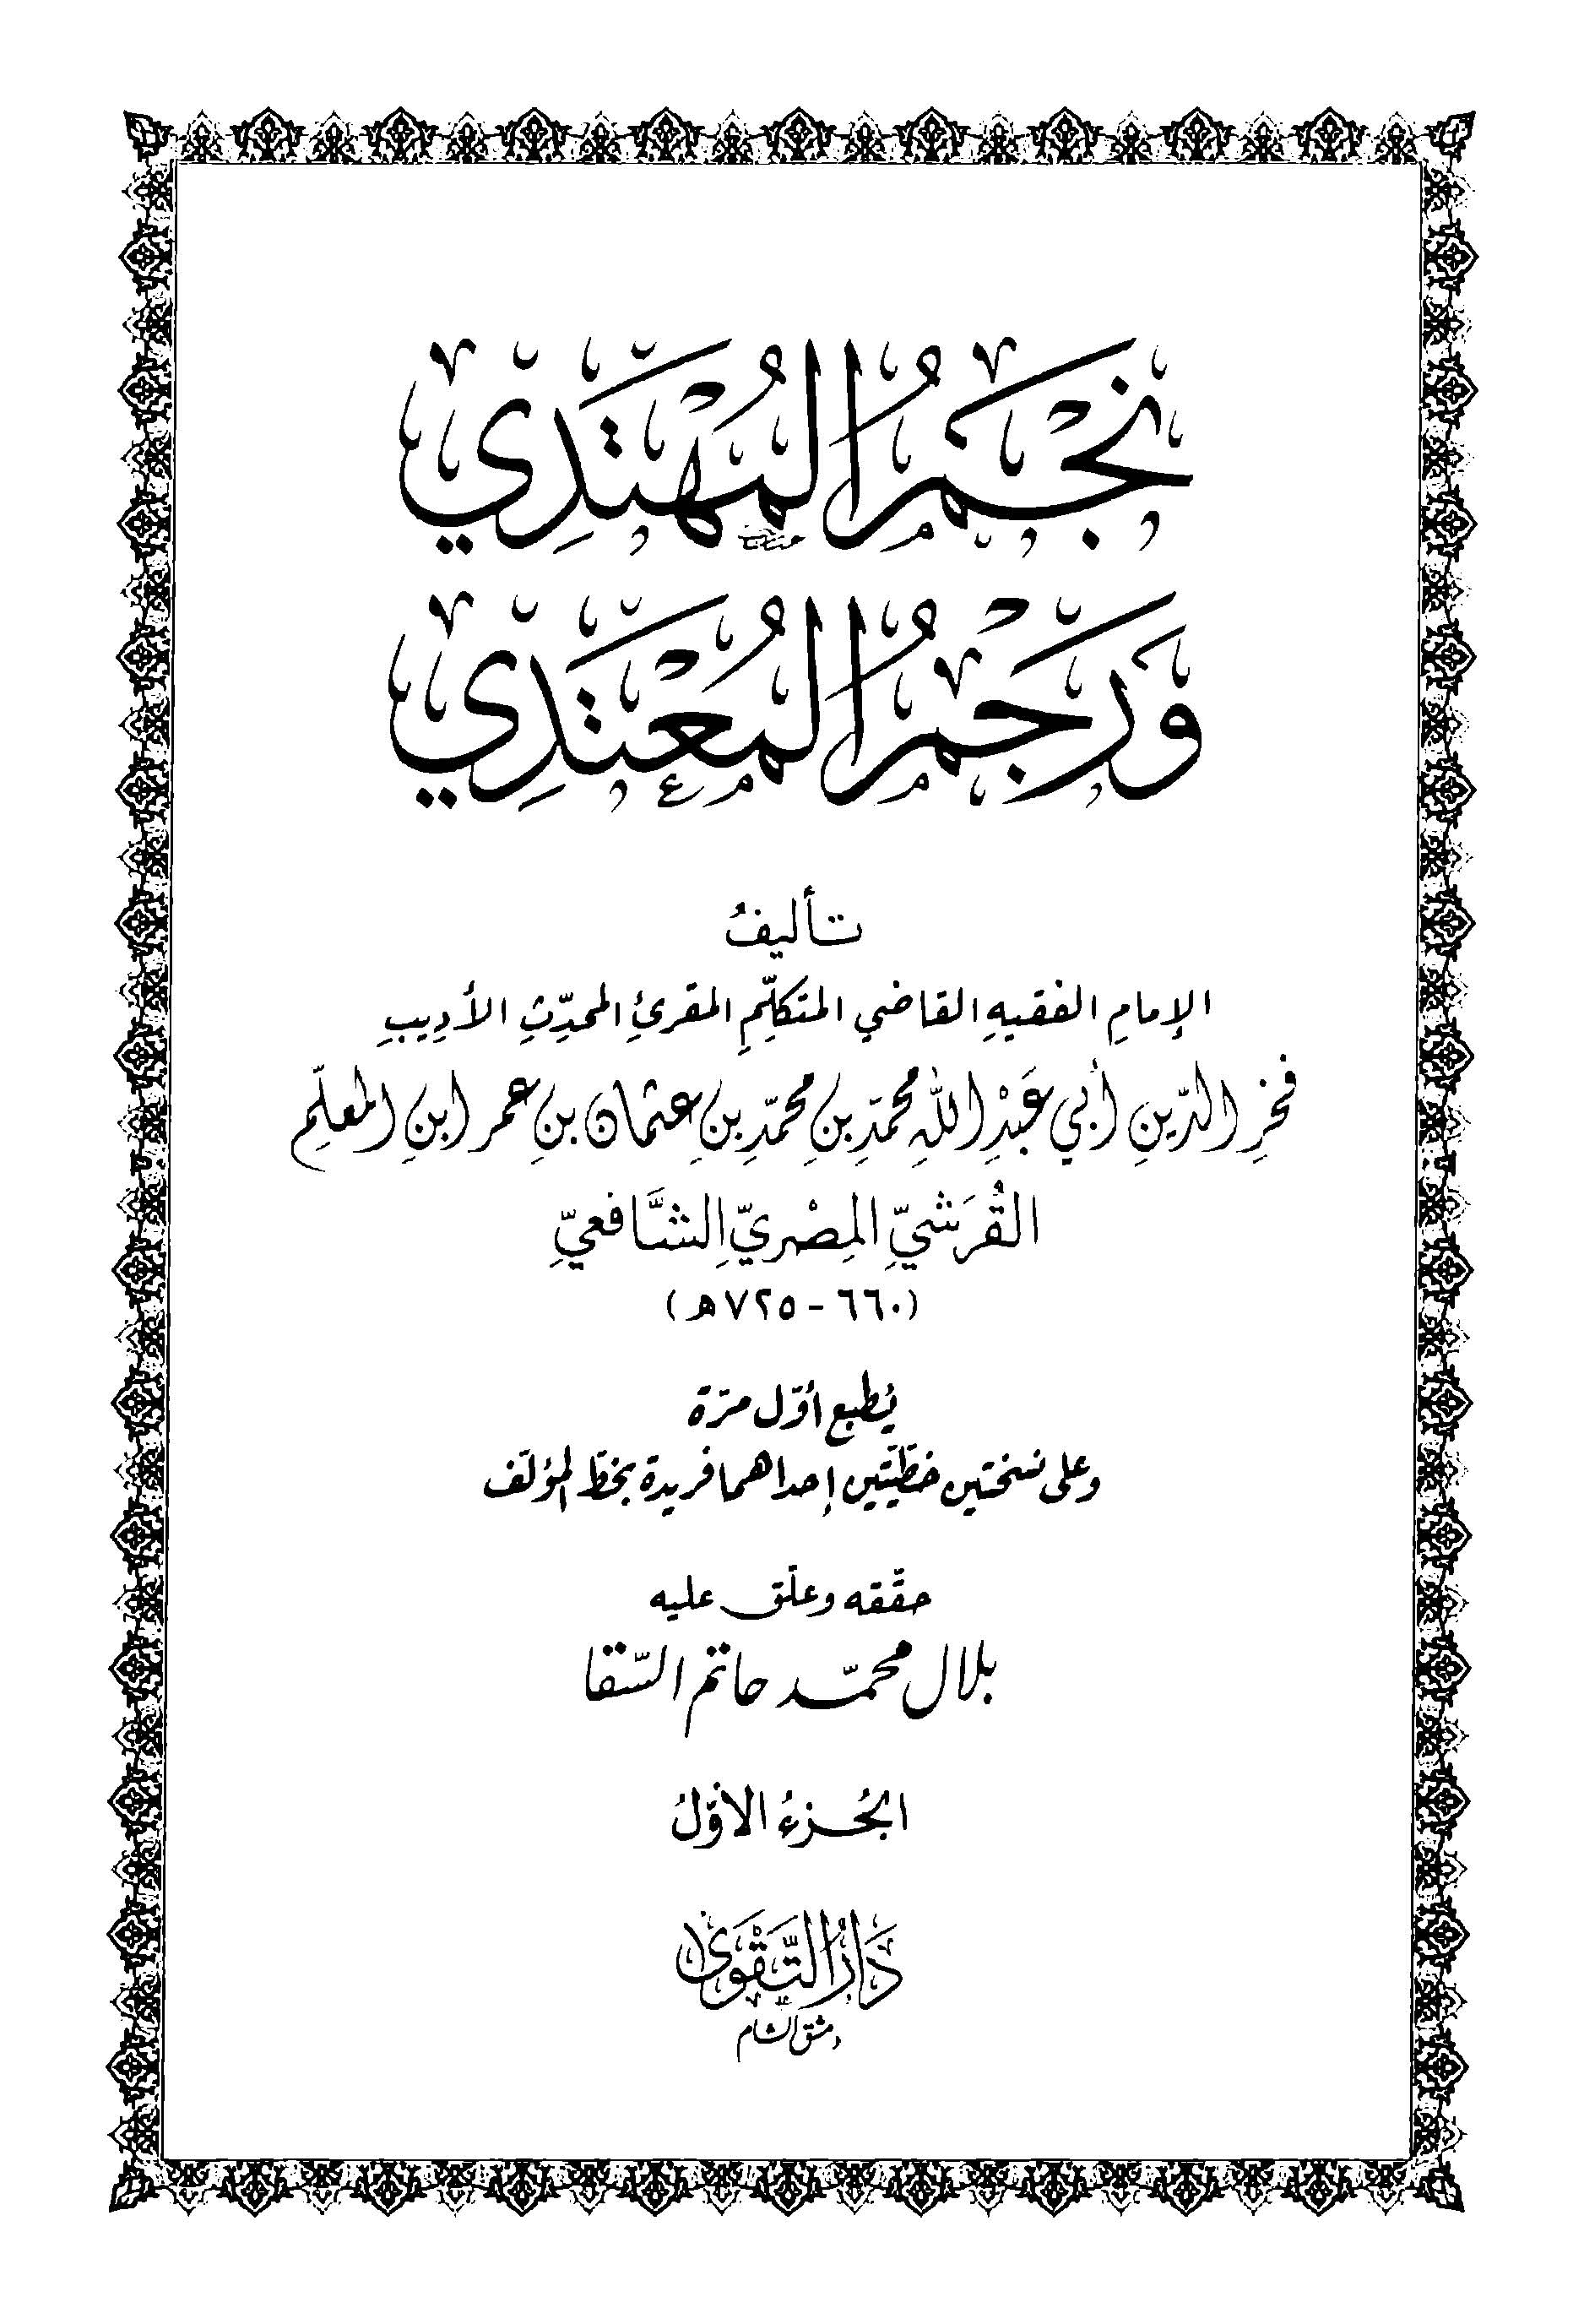 نَجْمُ المُهْتَدِي
وَرَجْمُ المُعْتَدِي
تأليفُ
الإمامِ الفقيهِ القاضي المتكلِّمِ المقرئِ المحدِّثِ الأديبِ
فخرِ الدّينِ أبي عَبْدِ اللهِ محمّدِ بنِ محمّدِ بنِ عثمان بنِ عمر ابنِ المعلِّمِ
القُرَشيِّ المِصْريِّ الشَّافعيِّ
(٦٦٠ - ٧٢٥ هـ)
يُطبع أوّل مرّة
وعلى نسختين خطّيّتين إحداهما فريدة بخطّ المؤلّف
حقَّقه وعلّق عليه
بلال محمّد حاتم السّقا
الجُزءُ الأوّلُ
دَارُ التَّقْوَى
دمشق الشام